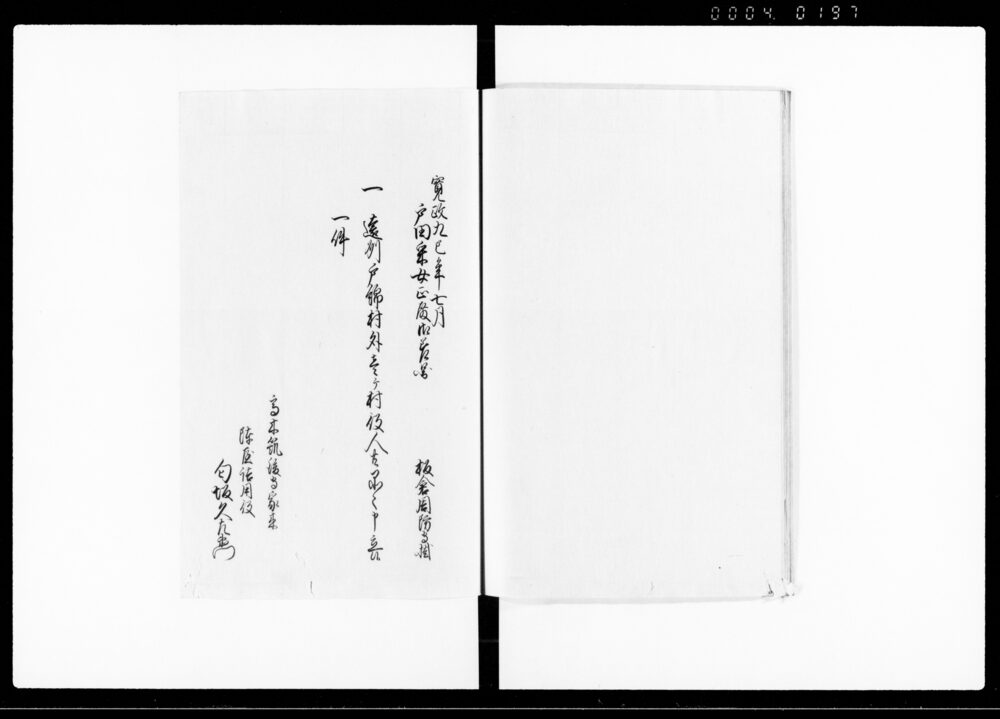 0004 0197
寛政九巳年七月
戸田采女正殿御
板倉周防守掛
一 遠州戸綿村外壱ヶ村役人
一件
高木筑後守家来
陣屋詰用役
匂坂久左衛門